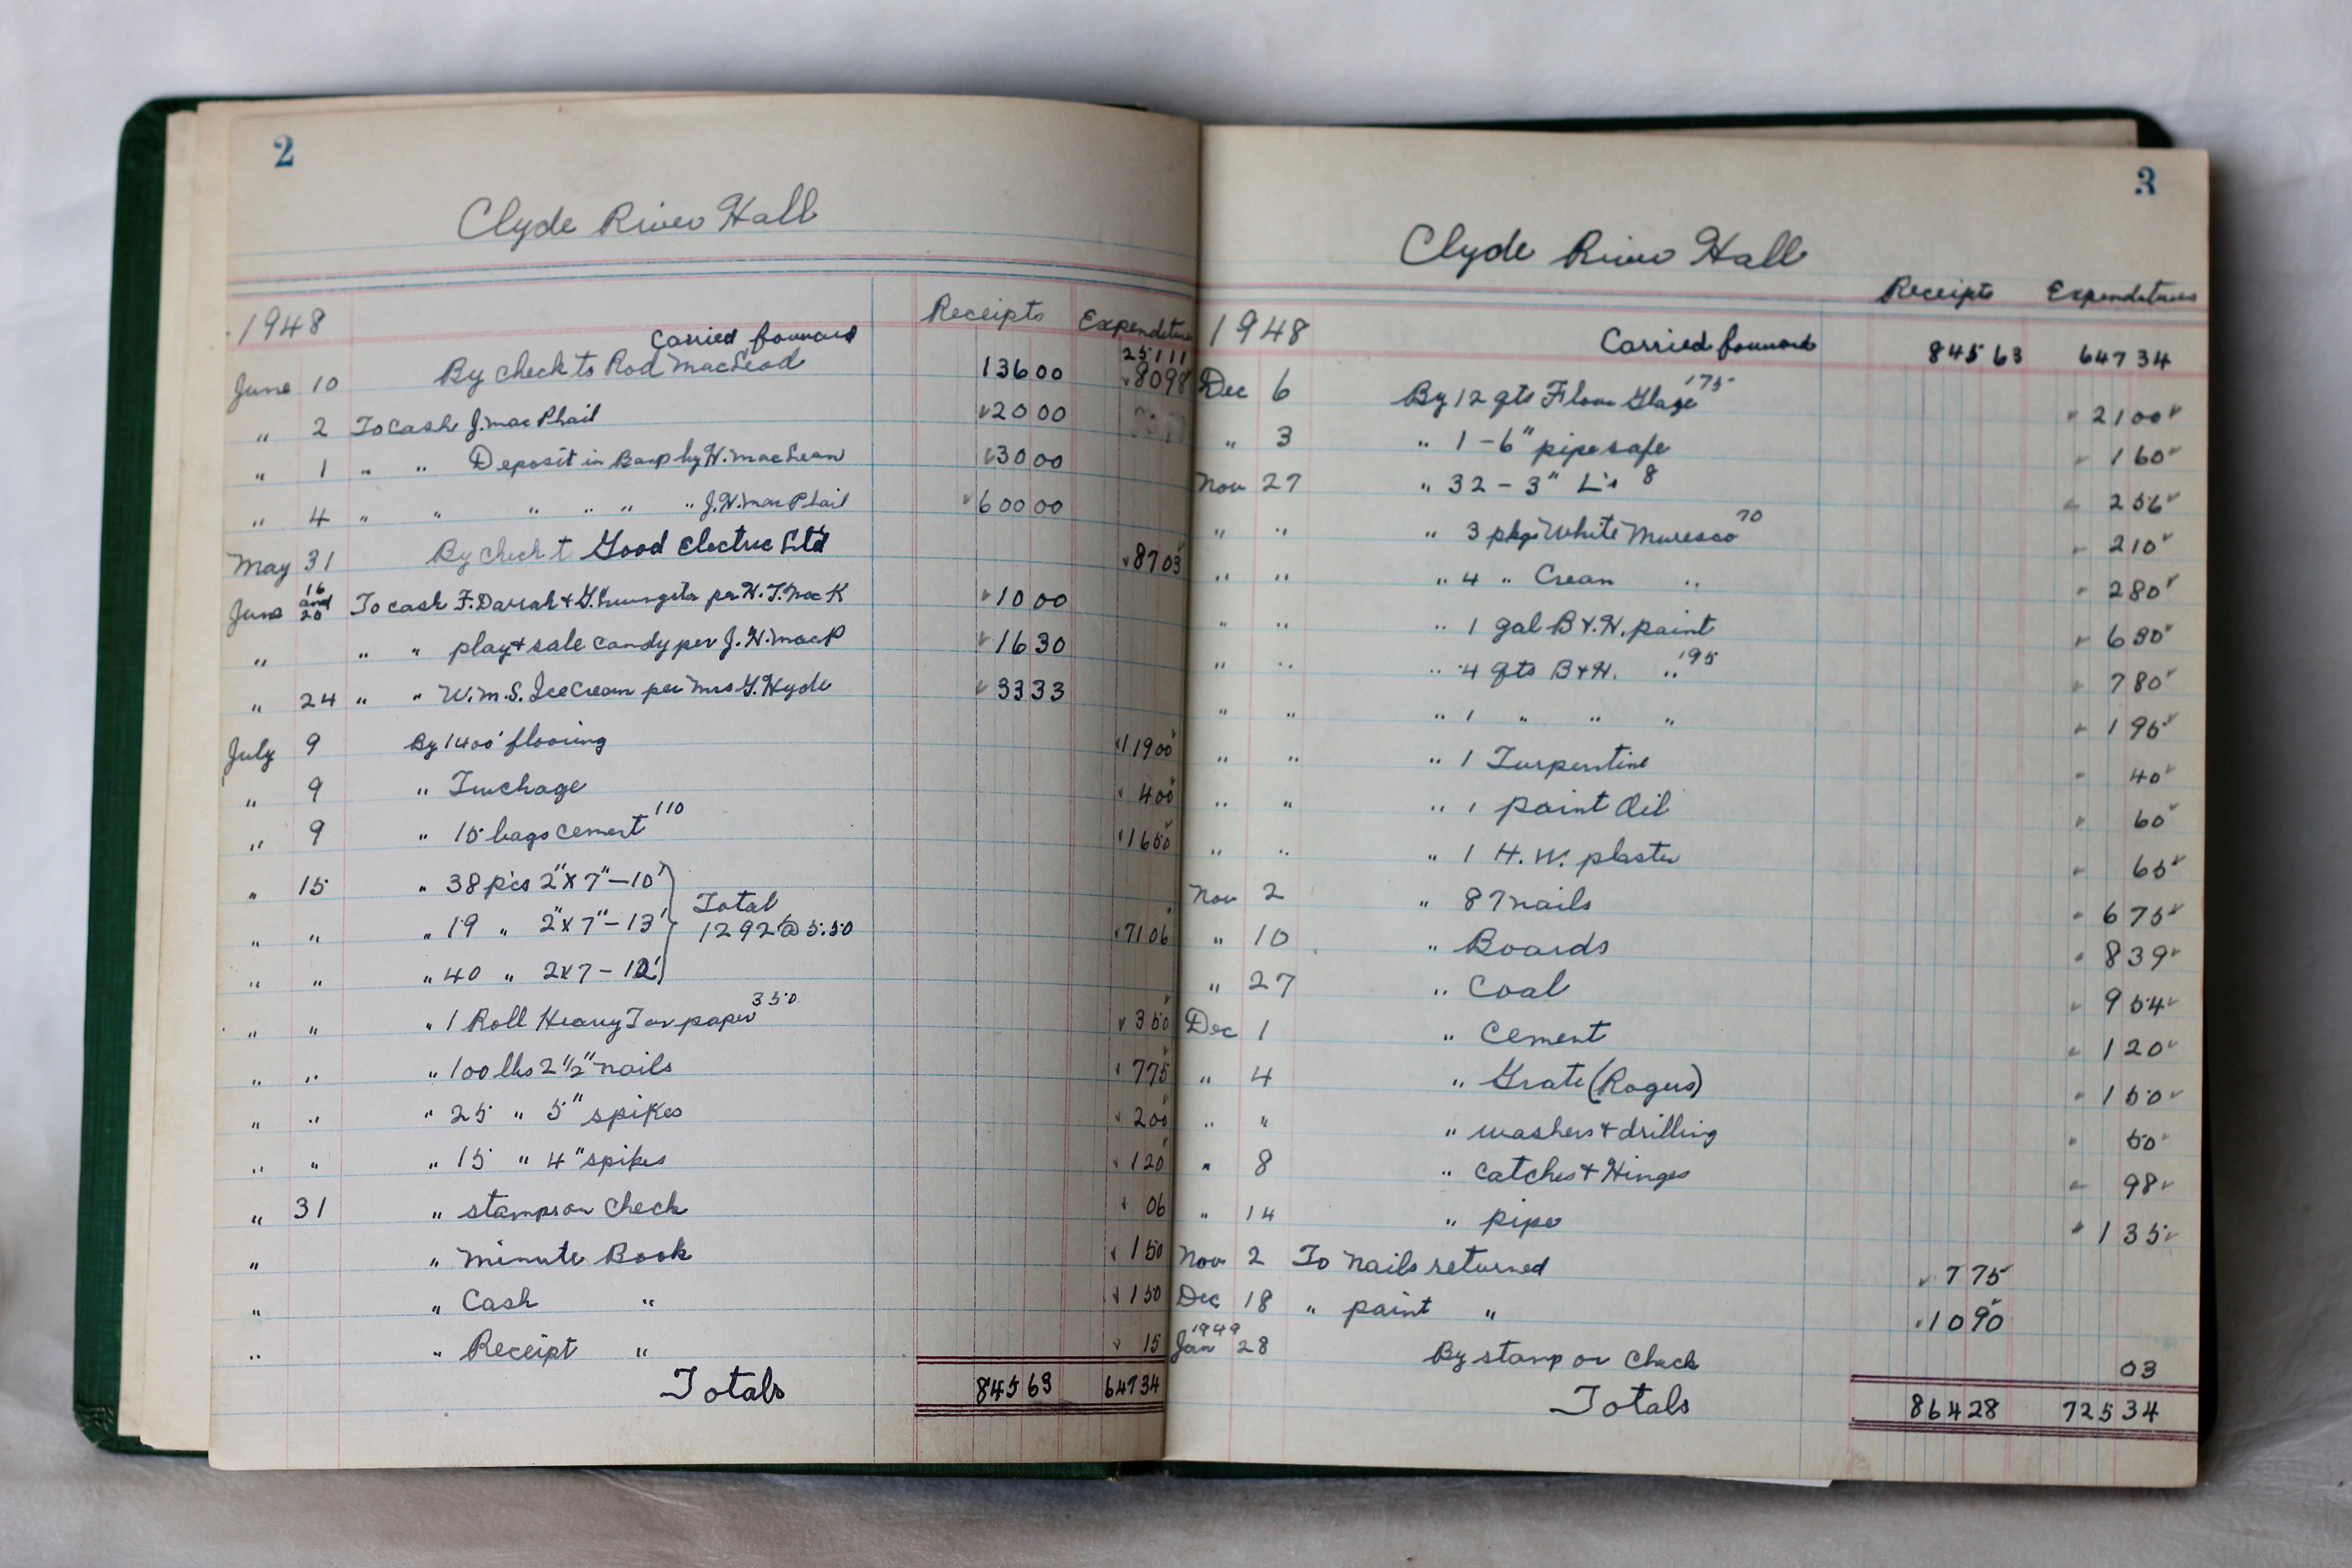 2
Clyde River Hall
Receipts Expenditures
1948
Carried forward 136 00 251 11
June 10 By check to Rod MacLeod 80 98
" 2 To cash J. MacPhail 20 00
" 1 " " Deposit in Bank by H. MacLean 30 00
" 4 " " " " " " J.H. MacPhail 600 00
May 31 By check to Good Electric Ltd 87 03
June 16 and 20 To cash F. Darrah & G. per H.J. MacK 10 00
" " " play & sale candy per J.H. MacP 16 30
" 24 " " W.M.S. Ice Cream per Mrs G. Hyde 33 33
July 9 By 1400' flooring 119 00
" 9 " Truckage 4 00
" 9 " 15 bags cement 110 16 50
" 15 " 38 pcs 2"x7"–10'
" " " 19 " 2"x7"–13' Total 1292 @ 5.50 71 06
" " " 40 " 2x7–12'
" " " 1 Roll Heavy Tar paper 350 3 50
" " " 100 lbs 2½" nails 7 75
" " " 25 " 5" spikes 2 00
" " " 15 " 4" spikes 1 20
" 31 " stamps on check 06
" " Minute Book 1 50
" " Cash " 1 50
" " Receipt " 15
Totals 845 63 647 34
3
Clyde River Hall
Receipts Expenditures
1948 Carried forward 845 63 647 34
Dec 6 By 12 qts Floor Glaze 175 21 00
" 3 " 1–6" pipe safe 1 60
Nov 27 " 32–3" L's 8 2 56
" " " 3 pkgs White Muresco 70 2 10
" " " 4 " Cream " 2 80
" " " 1 gal B & H. paint 6 80
" " " 4 qts B & H. " 195 7 80
" " " 1 " " " 1 95
" " " 1 Turpentine 40
" " " 1 paint Oil 60
" " " 1 H.W. plaster 65
Nov 2 " 87 nails 6 75
" 10 " Boards 8 39
" 27 " Coal 9 54
Dec 1 " Cement 1 20
" 4 " Grate (Rogers) 1 50
" " " washers & drilling 50
" 8 " Catches & Hinges 98
" 14 " pipe 1 35
Nov 2 To nails returned 7 75
Dec 18 " paint " 10 90
1949
Jan 28 By stamp on Check 03
Totals 864 28 725 34